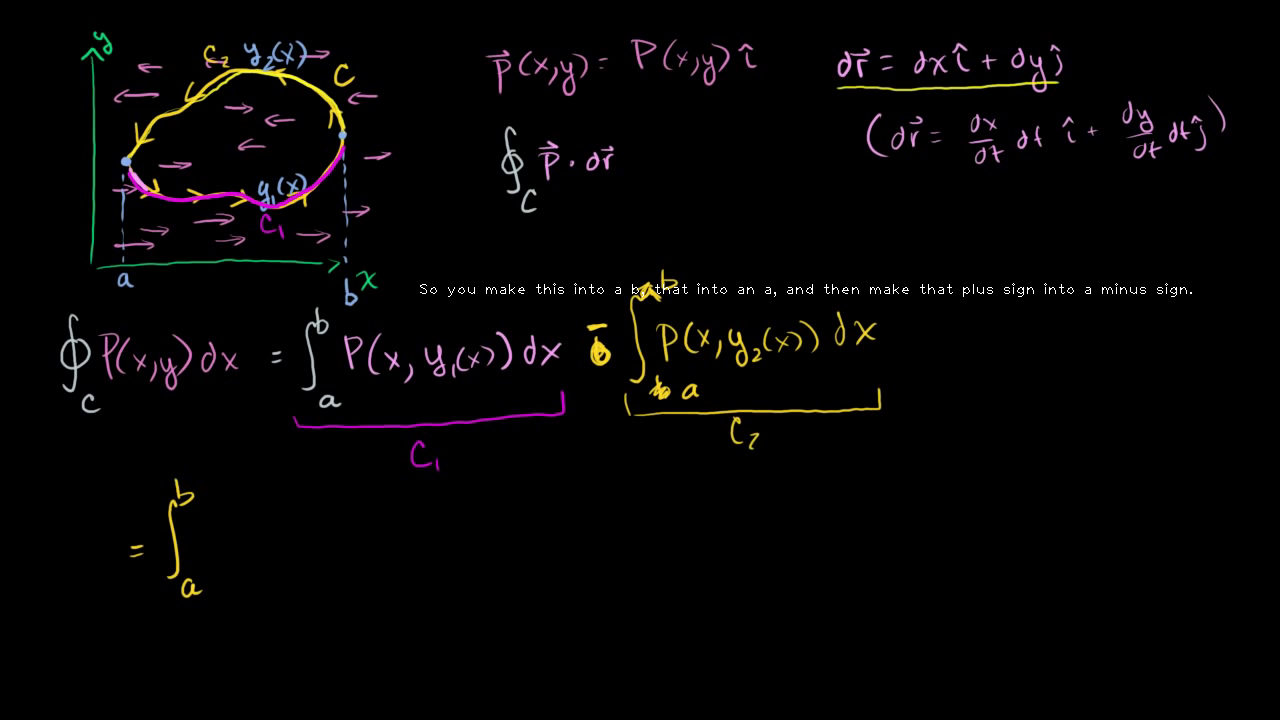 y
C₂ y₂(x)
C
y₁(x)
C₁
a
b
x
p⃗(x,y) = P(x,y) î
dr⃗ = dx î + dy ĵ
(dr⃗ = dx/dt dt î + dy/dt dt ĵ)
∮_C p⃗ · dr⃗
So you make this into a b, that into an a, and then make that plus sign into a minus sign.
∮_C P(x,y) dx = ∫_a^b P(x, y₁(x)) dx - ∫_a^b P(x, y₂(x)) dx
C₁
C₂
= ∫_a^b